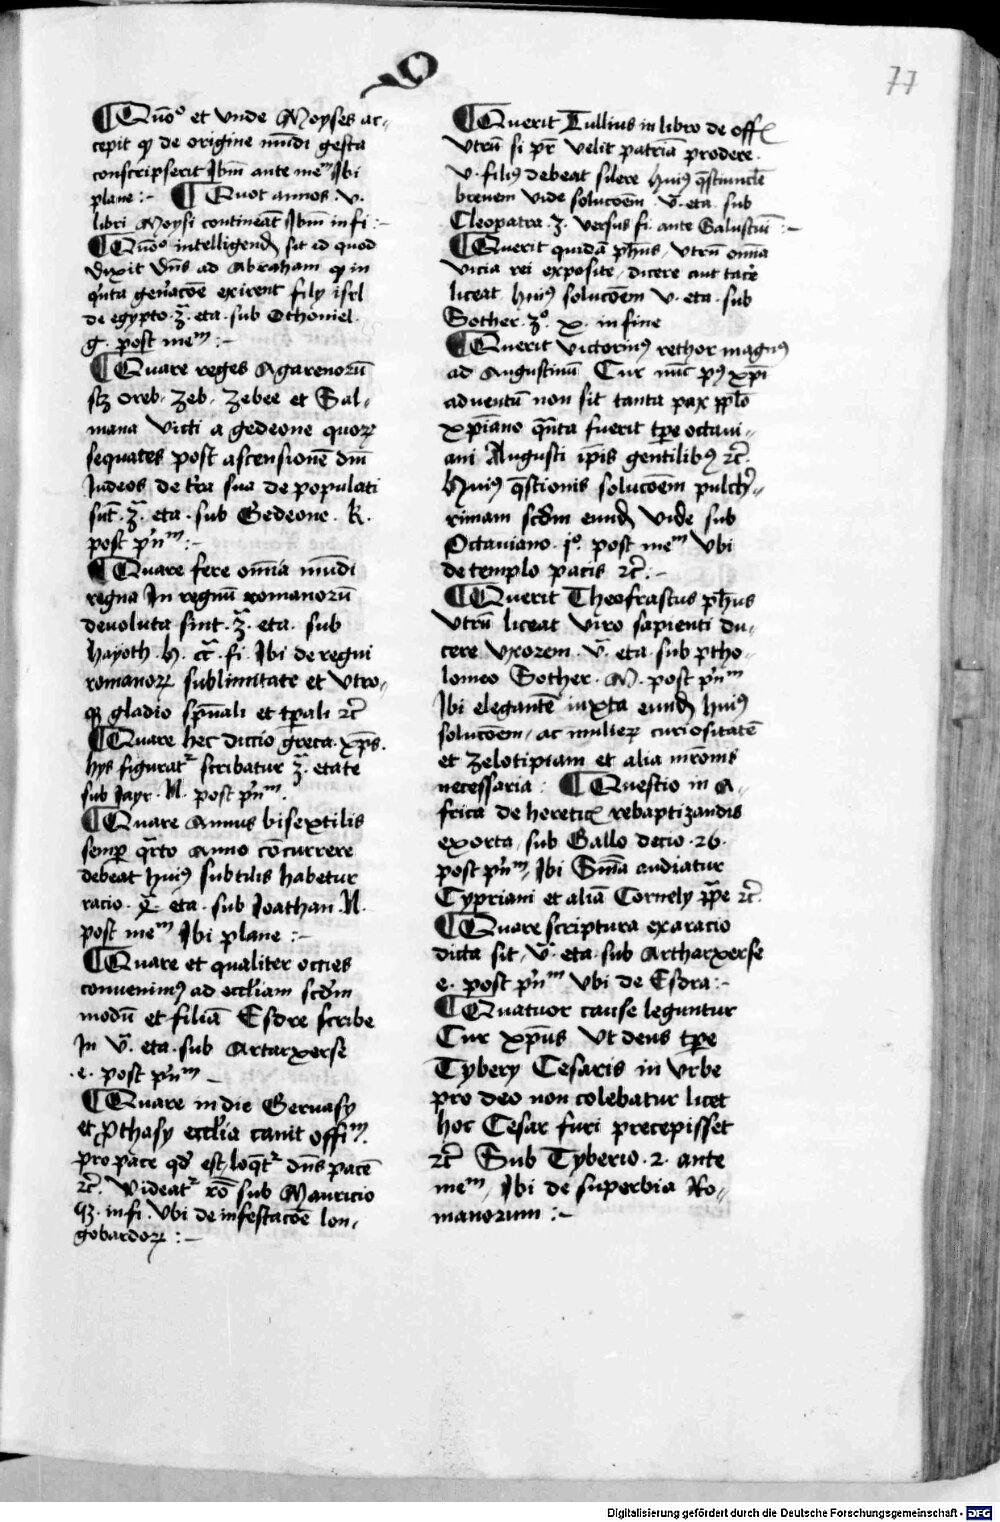 Q
77
¶ Quō° et vnde Moyses ac-
cepit qꝫ de origine mūdi gesta
conscripserit Ibm̄ ante meᵐ Ibi
plane :- ¶ Quot annos . v .
libri Moysi contineāt Ibm̄ in fi :-
¶ Quō° intelligendū sit id quod
dixit dn̄s ad Abraham qꝫ in
q̄rta gen̄acōe exirent filij isrl
de egypto . 3ᵃ . eta . sub Othoniel .
g . post meᵐ :-
¶ Quare reges Agarenorū
scꝫ Oreb . Zeb . Zebee et Sal-
mana victi a gedeone quoꝝ
sequates post ascensionē dn̄i
Iudeos de tr̄a sua depopulati
sūt . 3ᵃ . eta . sub Gedeone . k .
post pn̄ᵐ :-
¶ Quare fere om̄ia mūdi
regna In regnū romanorū
deuoluta sint . 3ᵃ . eta . sub
hayoth . h . fi . Ibi de regni
romanoꝝ sublimitate et vtro-
qꝫ gladio sp̄uali et tp̄ali ꝛc̄
¶ Quare hec diccio greca . xp̄s .
hys figuratʳ scribatur 3ᵃ . etate
sub Jayr . N . post pn̄ᵐ .
¶ Quare Annus bisextilis
semꝑ q̄rto Anno cōcurrere
debeat huiꝰ subtilis habetur
racio . eta . sub Joathan . N .
post meᵐ Ibi plane :-
¶ Quare et qualiter occies
conuenimꝰ ad eccl̄iam scd̄m
modū et filiā Esdre scribe
In v̄ . eta . sub Artarxerse
. e . post pn̄ᵐ -
¶ Quare in die Geruasy
et Prothasy eccl̄ia canit offiᵐ .
pro pace qd̄ est loq̄tʳ dn̄s pacē
ꝛc̄ . videatʳ rō sub Mauricio
in fi . vbi de infestacōe lon-
gobardoꝝ :-
¶ Querit Tullius in libro de off
vtrū si pr̄ velit patriā prodere .
v . filiꝰ debeat silere huiꝰ q̄stiuncl̄e
breuem vide solucōem . v̄ . eta . sub
Cleopatra . 3 . versus fi . ante Salustiū :-
¶ Querit quidā ph̄us , vtrū om̄ia
vicia rei exposite , dicere aut tacē
liceat huiꝰ solucōem v . eta . sub
Sother . 3° . x . in fine
¶ Querit victorinꝰ rethor magnꝰ
ad Augustinū Cur nūc pꝰ xp̄i
aduentū non sit tanta pax pp̄lo
xp̄iano q̄nta fuerit tp̄e octaui-
ani Augusti ip̄is gentilibꝰ ꝛc̄ .
Huiꝰ q̄stionis solucōem pulcher-
rimam scd̄m eund̄ vide sub
Octauiano . i° . post meᵐ vbi
de templo pacis ꝛc̄ :-
¶ Querit Theofrastus ph̄us
vtrū liceat viro sapienti du-
cere vxorem . v̄ . eta . sub ptho-
lomeo Sother . M . post pn̄ᵐ
Ibi elegantē iuxta eund̄ huiꝰ
solucōem , ac mulieꝝ curiositatē
et zelotipiam et alia
necessaria : ¶ Questio in A-
frica de heretic̄ rebaptizandis
exorta , sub Gallo decio . 26 .
post pn̄ᵐ , Ibi Sn̄ia audiatur
Cypriani et aliā Cornely pp̄e ꝛc̄ .
¶ Quare scriptura exaracio
dicta sit , v̄ . eta . sub Artharxerse
e . post pn̄ᵐ vbi de Esdra :-
¶ Quatuor cause leguntur
Cur xp̄us vt deus tp̄e
Tybery Cesaris in vrbe
pro deo non colebatur licet
hoc Cesar fieri precepisset
ꝛc̄ Sub Tyberio . 2 . ante
meᵐ , Ibi de superbia Ro-
manorum :-
Digitalisierung gefördert durch die Deutsche Forschungsgemeinschaft - DFG